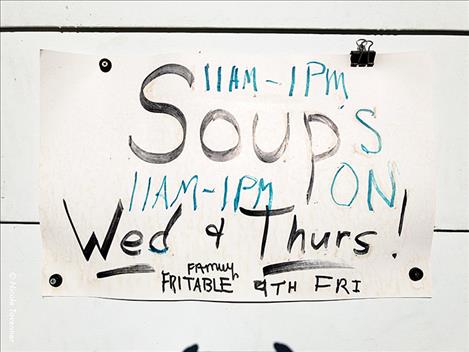 11AM-1PM
Soup'S
11AM-1PM ON
Wed & Thurs!
FAMILY
FRITABLE 4TH FRI
© Nicole Torreiner